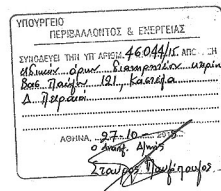 ΥΠΟΥΡΓΕΙΟ
ΠΕΡΙΒΑΛΛΟΝΤΟΣ & ΕΝΕΡΓΕΙΑΣ
ΣΥΝΟΔΕΥΕΙ ΤΗΝ ΥΠ' ΑΡΙΘΜ. 46044/15 ΑΠΟ
ειδικών όρων διατηρητέων κτιρίων
Βασ. Παύλου 121, Καστέλα
Δ. Πειραιά
ΑΘΗΝΑ, 27-10-
Ο
Σταύρος